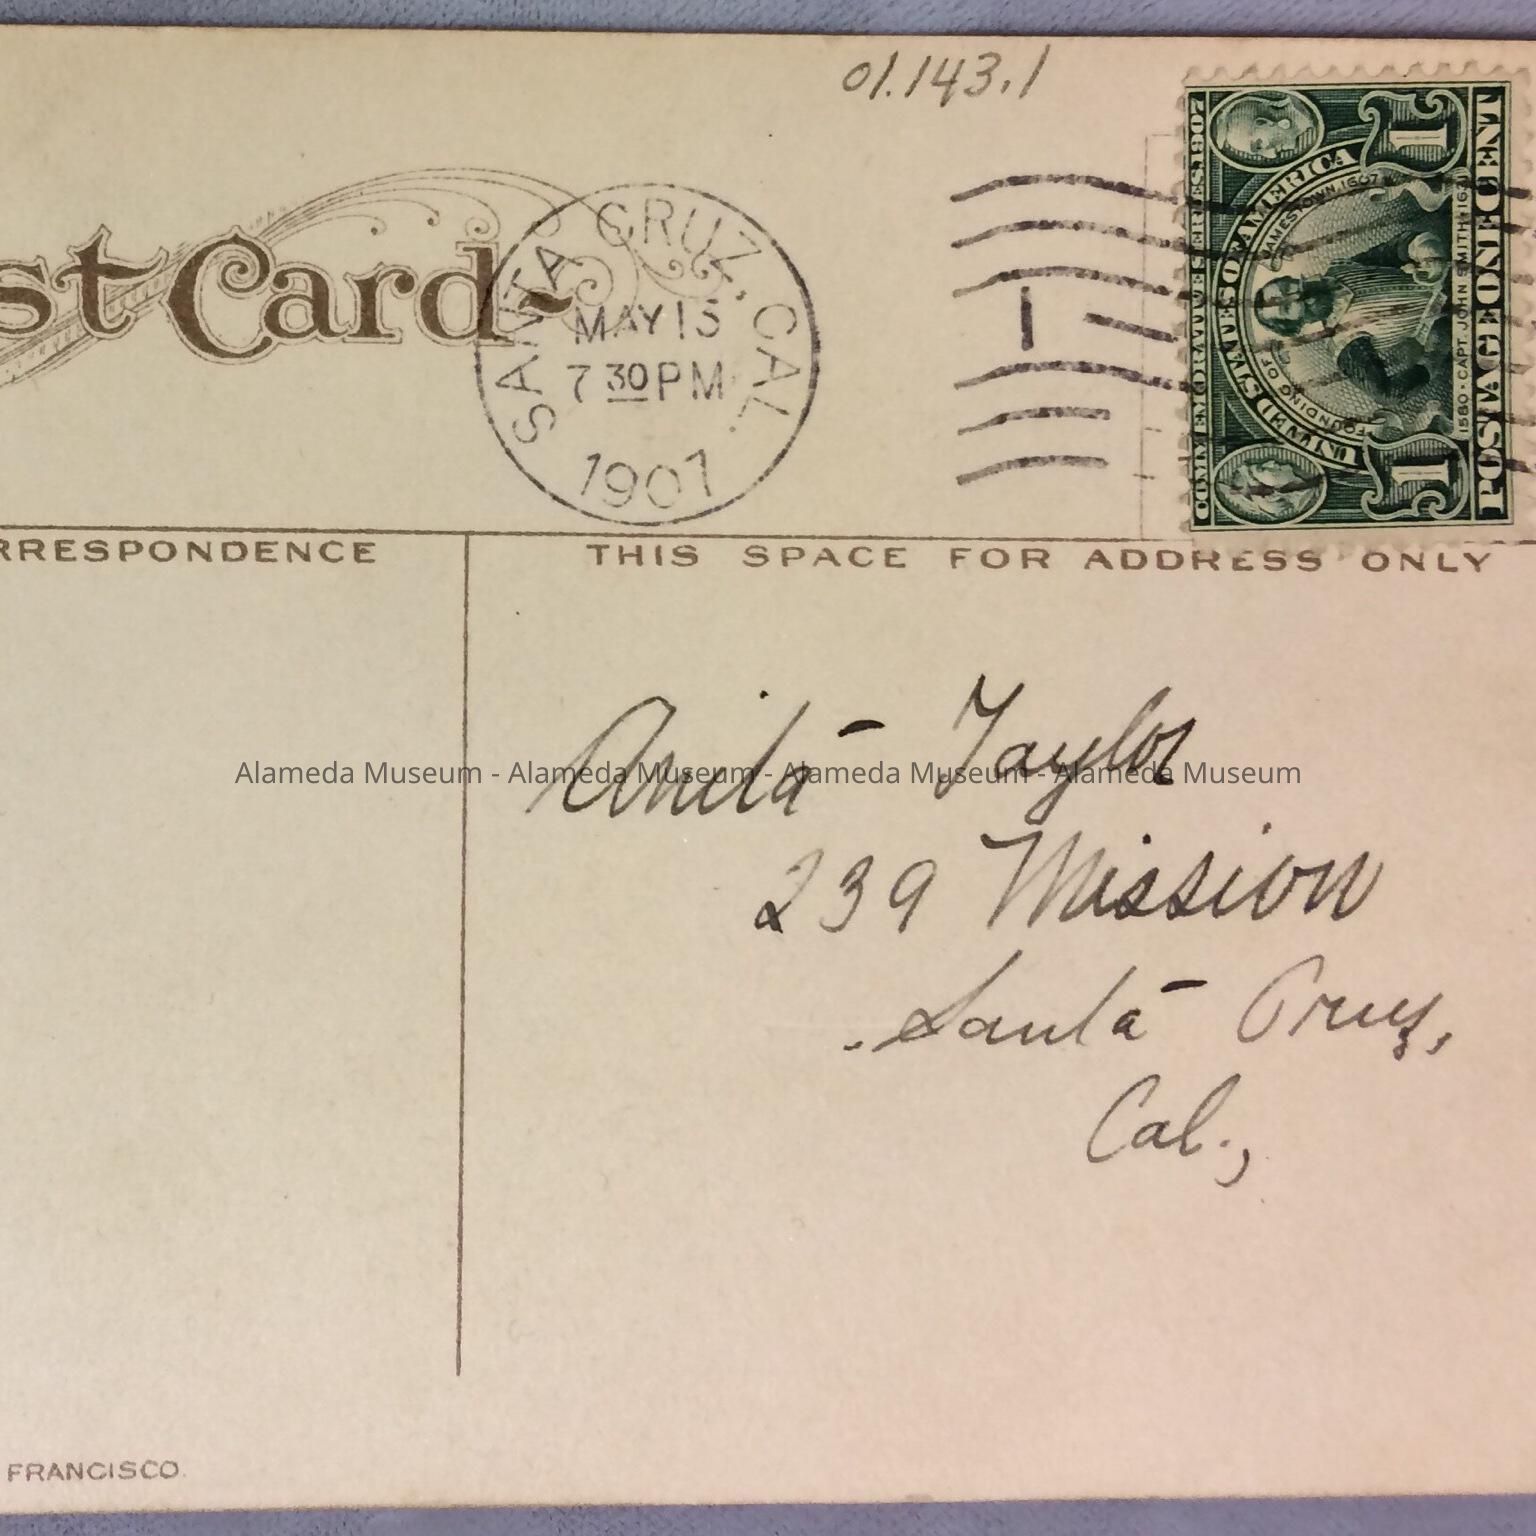 01.143.1
st Card
SANTA CRUZ, CAL.
MAY 13
7 30 PM
1907
1
COMMEMORATIVE SERIES 1907
UNITED STATES OF AMERICA
FOUNDING OF JAMESTOWN 1607
1580 · CAPT. JOHN SMITH · 1631
POSTAGE ONE CENT
1 1
RRESPONDENCE
THIS SPACE FOR ADDRESS ONLY
Anita Taylor
Alameda Museum - Alameda Museum - Alameda Museum - Alameda Museum
239 Mission
Santa Cruz,
Cal.,
FRANCISCO.